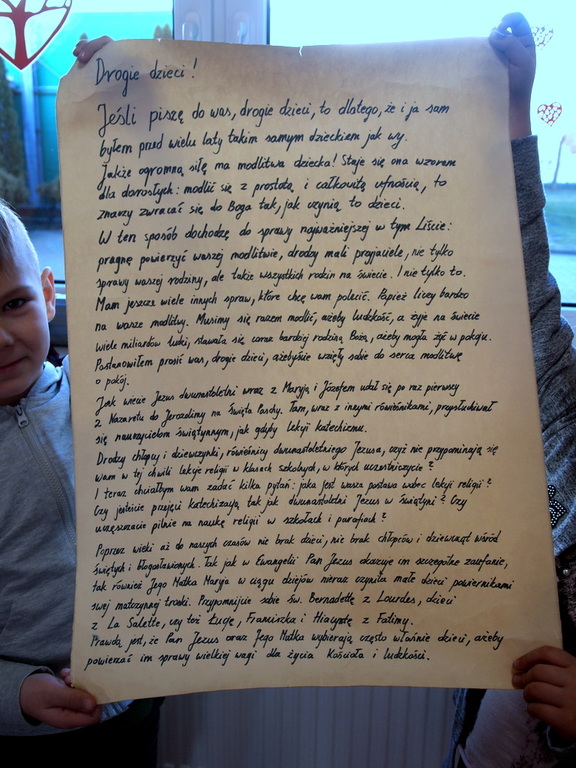 Drogie dzieci!
Jeśli piszę do was, drogie dzieci, to dlatego, że i ja sam
byłem przed wielu laty takim samym dzieckiem jak wy.
Jakże ogromną siłę ma modlitwa dziecka! Staje się ona wzorem
dla dorosłych: modlić się z prostotą i całkowitą ufnością, to
znaczy zwracać się do Boga tak, jak czynią to dzieci.
W ten sposób dochodzę do sprawy najważniejszej w tym Liście:
pragnę powierzyć waszej modlitwie, drodzy mali przyjaciele, nie tylko
sprawy waszej rodziny, ale także wszystkich rodzin na świecie. I nie tylko to.
Mam jeszcze wiele innych spraw, które chcę wam polecić. Papież liczy bardzo
na wasze modlitwy. Musimy się razem modlić, ażeby ludzkość, a żyje na świecie
wiele miliardów ludzi, stawała się coraz bardziej rodziną Bożą, ażeby mogła żyć w pokoju.
Postanowiłem prosić was, drogie dzieci, ażebyście wzięły sobie do serca modlitwę
o pokój.
Jak wiecie Jezus dwunastoletni wraz z Maryją i Józefem udał się po raz pierwszy
z Nazaretu do Jerozolimy na Święta Paschy. Tam, wraz z innymi rówieśnikami, przysłuchiwał
się nauczycielom świątynnym, jak gdyby lekcji katechizmu.
Drodzy chłopcy i dziewczynki, rówieśnicy dwunastoletniego Jezusa, czyż nie przypominają się
wam w tej chwili lekcje religii w klasach szkolnych, w których uczestniczycie?
I teraz chciałbym wam zadać kilka pytań: jaka jest wasza postawa wobec lekcji religii?
Czy jesteście przejęci katechizacją tak jak dwunastoletni Jezus w świątyni? Czy
uczęszczacie pilnie na naukę religii w szkołach i parafiach?
Poprzez wieki aż do naszych czasów nie brak dzieci, nie brak chłopców i dziewcząt wśród
świętych i błogosławionych. Tak jak w Ewangelii Pan Jezus okazuje im szczególne zaufanie,
tak również Jego Matka Maryja w ciągu dziejów nieraz czyniła małe dzieci powiernikami
swej matczynej troski. Przypomnijcie sobie św. Bernadettę z Lourdes, dzieci
z La Salette, czy też Łucję, Franciszka i Hiacyntę z Fatimy.
Prawdą jest, że Pan Jezus oraz Jego Matka wybierają często właśnie dzieci, ażeby
powierzać im sprawy wielkiej wagi dla życia Kościoła i ludzkości.